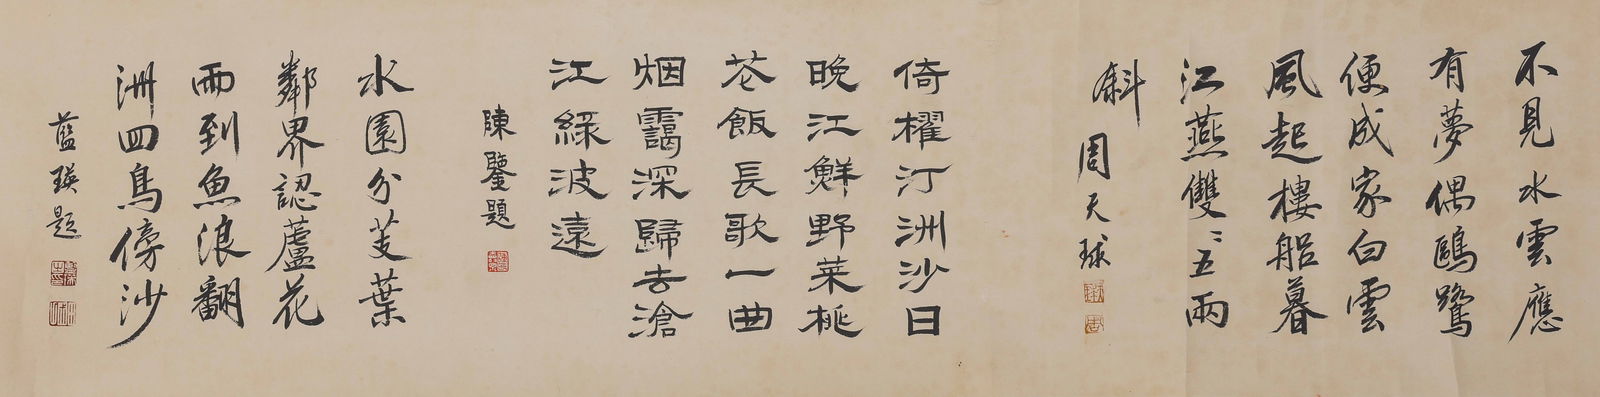 不見水雲應
有夢偶鷗鷺
便成家白雲
風起樓船暮
江燕雙〻五兩
斜
周天球
倚櫂汀洲沙日
晚江鮮野菜桃
花飯長歌一曲
烟靄深歸去滄
江綠波遠
陳鑒題
水園分芰葉
鄰界認蘆花
雨到魚浪翻
洲四鳥傍沙
藍瑛題